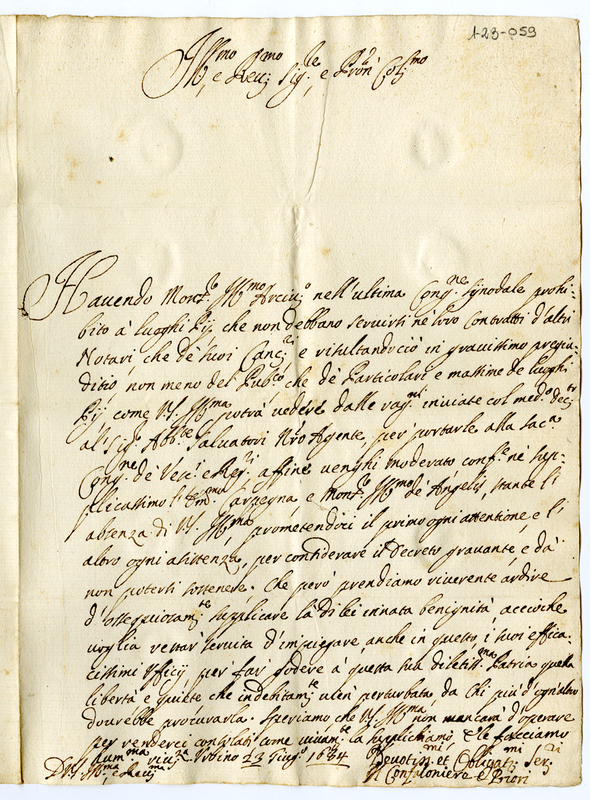 1-23-059
Ill.mo e Rev.mo Sig.re e Pron Col.mo
Havendo Mons.r Ill.mo Arciv.o nell'ultima Cong.ne Synodale prohi-
bito à luoghi Pij che non debbano servirsi nè loro contratti d'altri
Notari, che de' suoi Canc.ri e risultando ciò in gravissimo pregiu-
ditio non meno del Pub.co che de' Particolari e massime de luoghi
Pij come V.S. Ill.ma potrà vedere dalle rag.ni inviate col med.o dec.to
al Sig.r Abb.te Salvatori Nro Agente, per portarle alla Sac.a
Cong.ne de' Vesc.i e Reg.ri affine venghi moderato conf.e nè sup-
plicassimo l'Em.mo Carpegna, e Mons.r Ill.mo de' Angelis, stante l'
absenza di V.S. Ill.ma, promettendoci il primo ogni attentione, e l'
altro ogni assistenza, per considerare il Decreto gravante, e da
non potersi sostenere. Che però prendiamo riverente ardire
d'ossequiosam.te supplicare la di lei innata benignità accioche
voglia restar servita d'impiegare anche in questo i suoi effica-
cissimi Ufficij, per far godere à questa sua dilettiss.ma Patria quella
libertà e quiete che indebitam.te alen perturbata da chi più d'ogn'altro
dovrebbe procurarla. Speriamo che V.S. Ill.ma non mancarà d'operare
per renderci consolati come vivam.te la supplichiamo, e le facciamo
hum.ma riv.za Urbino 23 Giug.o 1684
D V.S. Ill.ma e Rev.ma
Devotiss.mi et Obligat.mi Ser.ri
Il Confaloniere e Priori